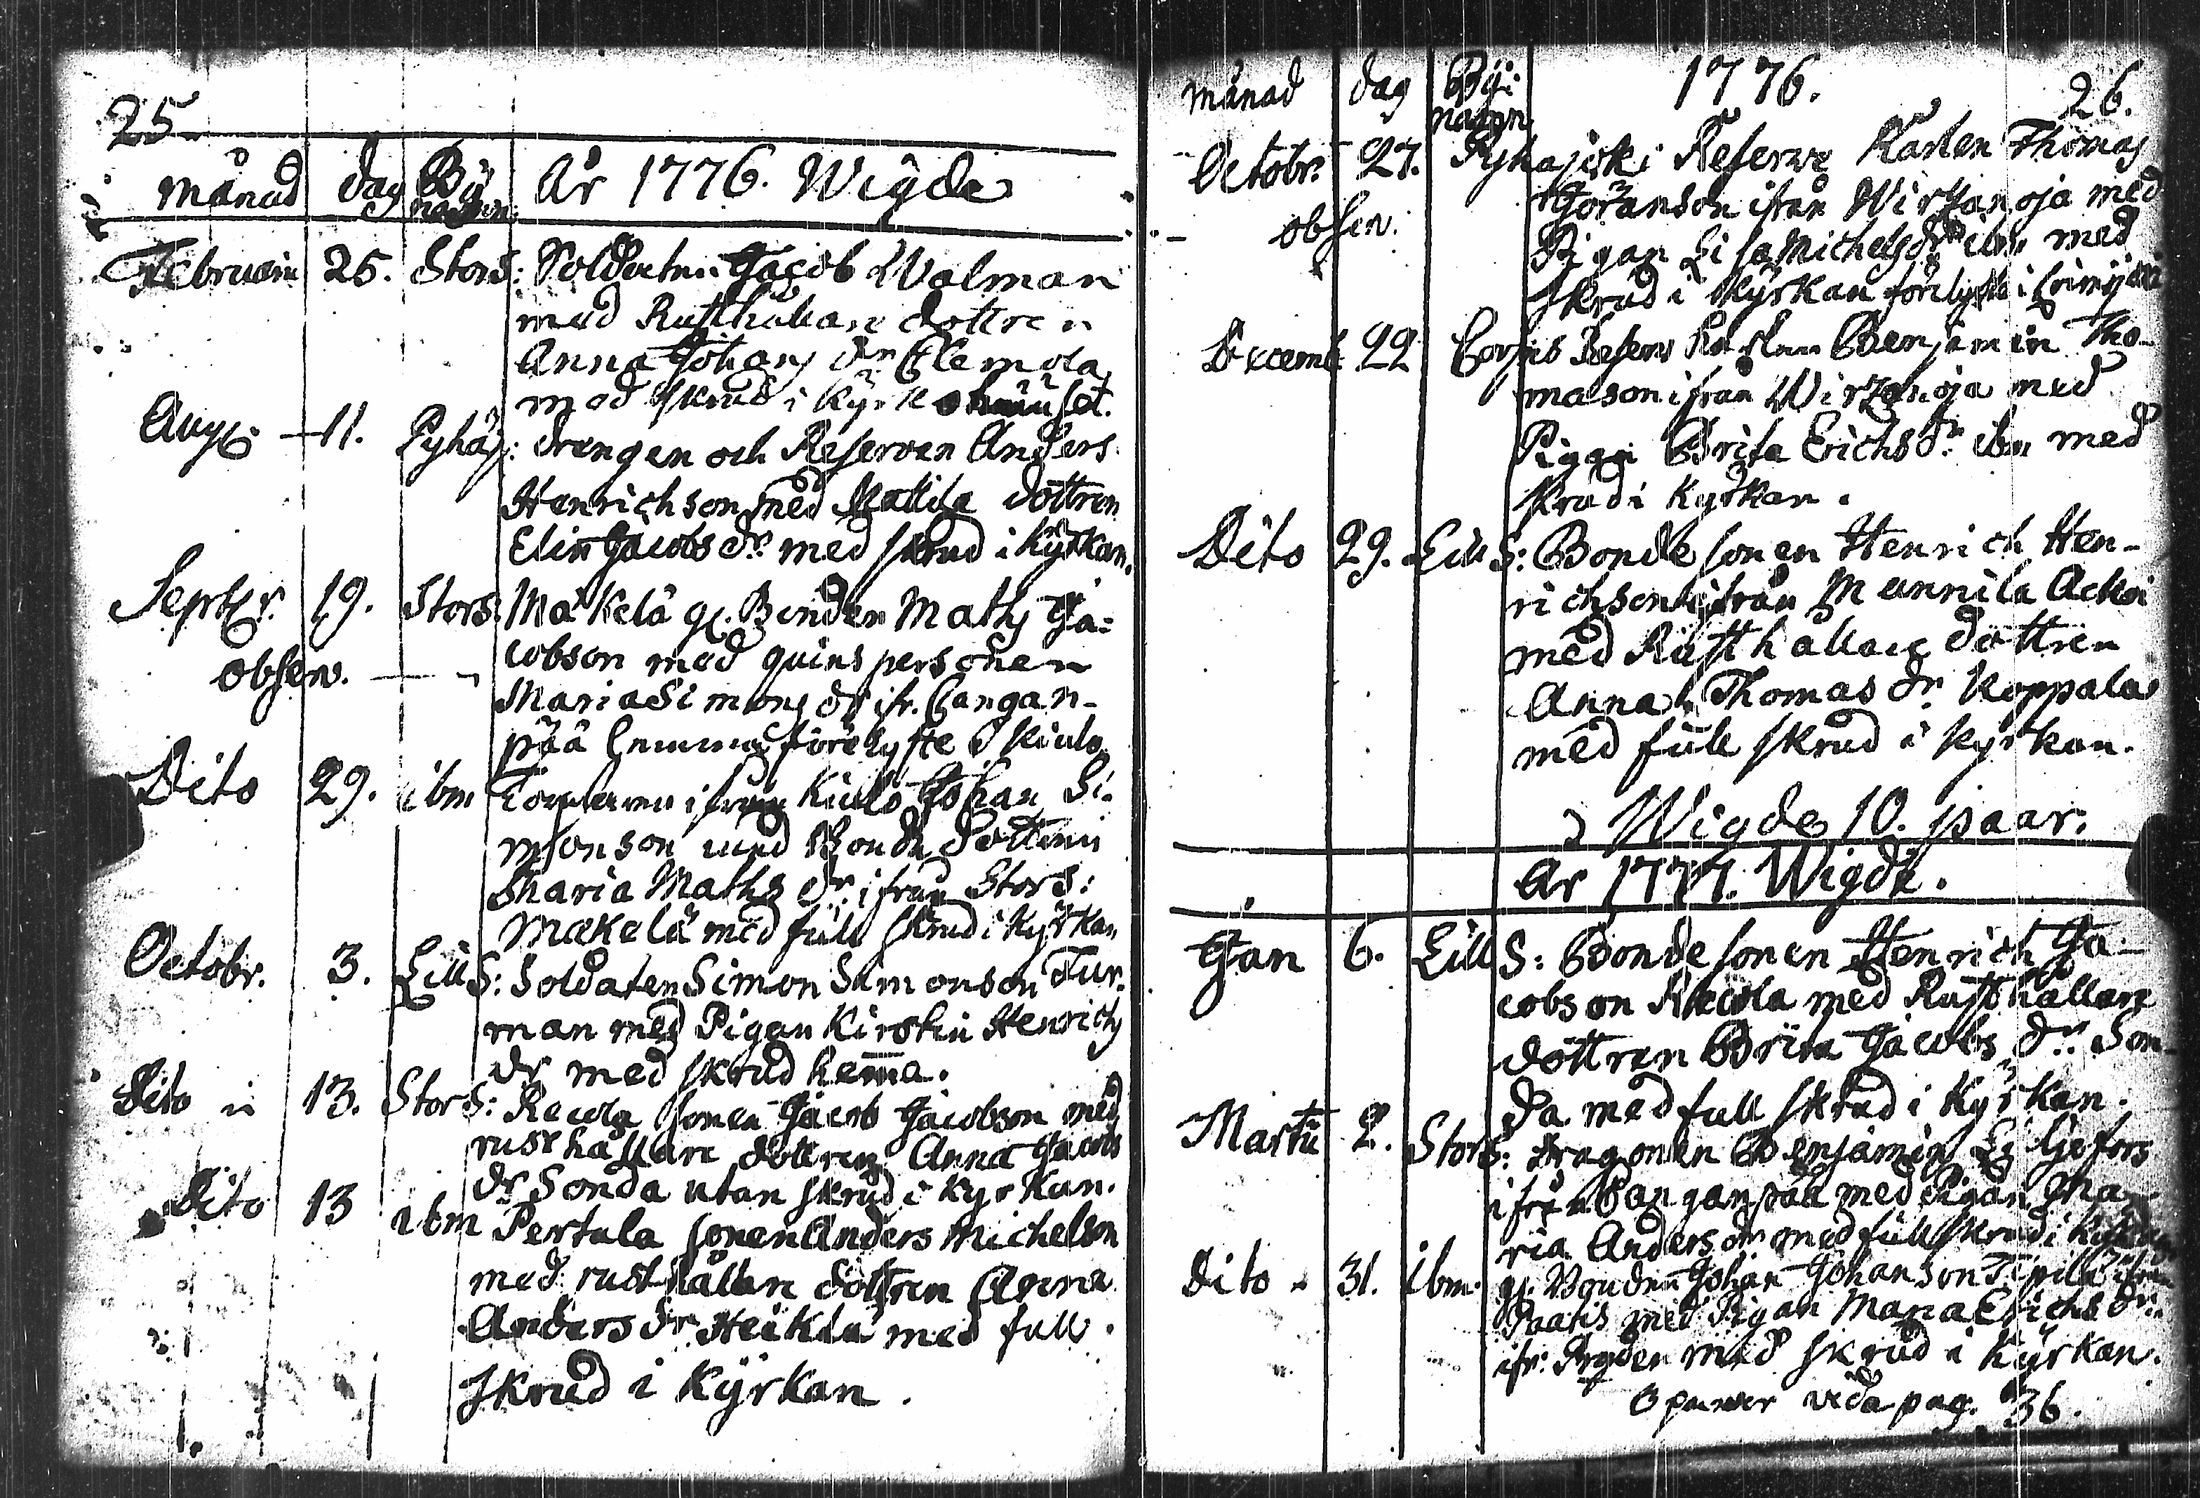 25
månad dag By namn: År 1776. Wigde
Februarii 25. Stors: Soldaten Jacob Walman
med Rusthållare dottren
Anna Johans dr Clemola
med skrud i Kyrko
Aug 11. Pyhäj: drengen och Reserven Anders
Henrichson med Mattila dottren
Elin Jacobs dr med skrud i Kyrkan.
Septbr. 19. Stors: Mäkelä gl. Bonden Maths Ja=
cobson med quins personen
observ. Maria Simons dr ifr. Cangan-
pää
Dito 29. ibm ifrån Kiulo Johan Si-
monson med Bonde dottren
Maria Maths dr ifrån Stors:
Mäkelä med full skrud i Kyrkan
Octobr. 3. Lill S: Soldaten Simon Simonson Tur-
man med Pigan Kirstin Henrichs
dr med skrud hema.
Dito 13. Stors: Recola sonen Jacob Jacobson med
rusthållare dottren Anna Jacobs
dr Sonda utan skrud i Kyrkan.
Dito 13 ibm Pertula sonen Anders Michelson
med rusthållare dottren Anna
Anders dr Heikila med full
skrud i Kyrkan.
månad dag By: namn 1776. 26.
Octobr. 27. Pyhäjoki Reserve Karlen Thomas
Göranson ifrån Wirzanoja med
observ. Pigan Lisa Michels dr ibm med
skrud i Kyrkan
Decemb 22 Corpns Reserv Karlen Benjamin Tho-
mason ifrån Wirzanoja med
Pigan Brita Erichs dr ibm med
skrud i Kyrkan.
Dito 29. Lill S: Bonde sonen Henrich Hen-
richson ifrån Mannila
med Rusthållare dottren
Anna Thomas dr. Koppala
med full skrud i Kyrkan.
Wigde 10. paar.
År 1777. Wigde.
Jan 6. Lill S: Bonde sonen Henrich Ja-
cobson med Rusthållare
dottren Brita Jacobs dr. Son-
da med full skrud i Kyrkan.
Martii 2. Stors: dragonen Benjamin Liljefors
ifrån Canganpää med Pigan Ma-
ria Anders dr med full skrud i Kyrkan
Dito 31. ibm. gl. Bonden Johan Johanson ifrån
Paatis med Pigan Maria Erichs dr.
ifr: med skrud i Kyrkan.
vida pag. 36.